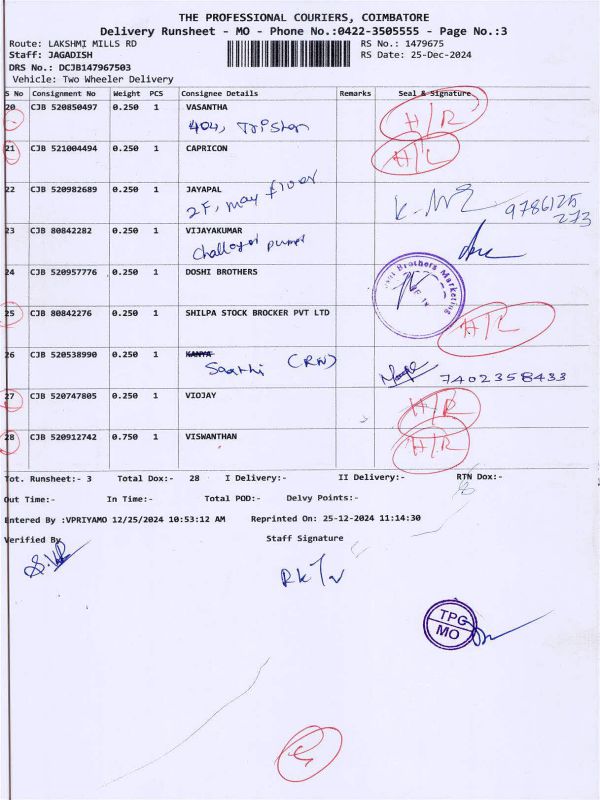 THE PROFESSIONAL COURIERS, COIMBATORE
Delivery Runsheet - MO - Phone No.:0422-3505555 - Page No.:3
Route: LAKSHMI MILLS RD RS No.: 1479675
Staff: JAGADISH RS Date: 25-Dec-2024
DRS No.: DCJB147967503
Vehicle: Two Wheeler Delivery
S No Consignment No Weight PCS Consignee Details Remarks Seal & Signature
20 CJB 520850497 0.250 1 VASANTHA H/R
404, Tristar
21 CJB 521004494 0.250 1 CAPRICON H/L
22 CJB 520982689 0.250 1 JAYAPAL
2F, may flower
9786125
273
23 CJB 80842282 0.250 1 VIJAYAKUMAR
24 CJB 520957776 0.250 1 DOSHI BROTHERS
Brothers Marketing
25 CJB 80842276 0.250 1 SHILPA STOCK BROCKER PVT LTD H/L
26 CJB 520538990 0.250 1 KANYA
Saathi (RW) 7402358433
27 CJB 520747805 0.250 1 VIOJAY H/R
28 CJB 520912742 0.750 1 VISWANTHAN H/R
Tot. Runsheet:- 3 Total Dox:- 28 I Delivery:- II Delivery:- RTN Dox:-
Out Time:- In Time:- Total POD:- Delvy Points:-
Entered By :VPRIYAMO 12/25/2024 10:53:12 AM Reprinted On: 25-12-2024 11:14:30
Verified By Staff Signature
TPC
MO